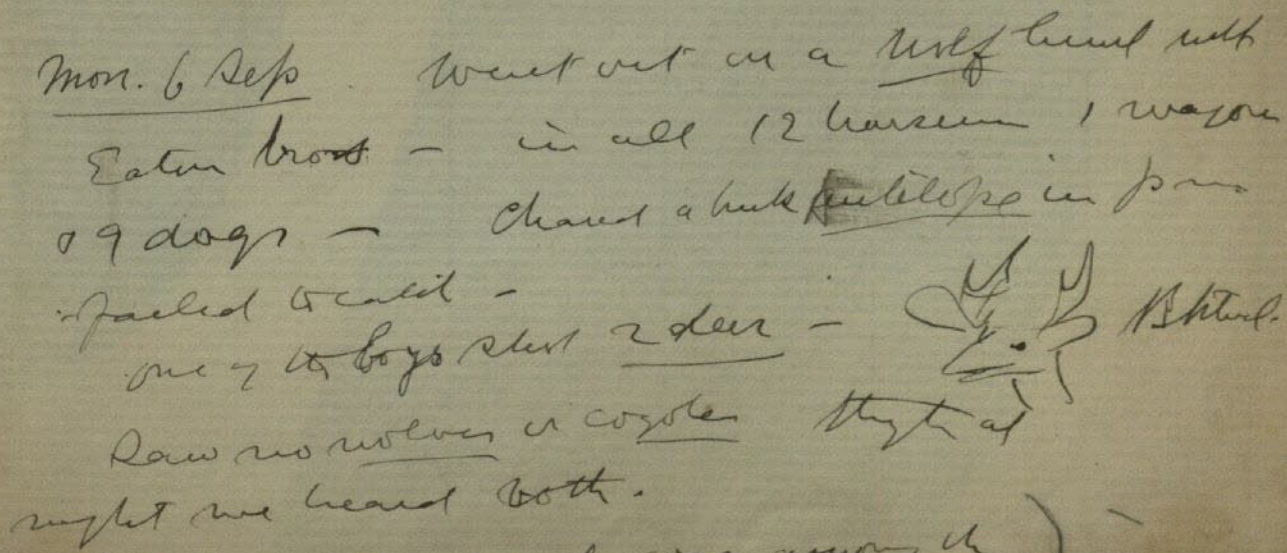 Mon. 6 Sep. Went out on a Wolf hunt with
Eaton bros — in all 12 horsemen 1 wagon
& 9 dogs — Chased a buck antelope in
failed to catch —
one of the boys shot 2 deer —
Saw no wolves or coyotes though at
night we heard both.
among the